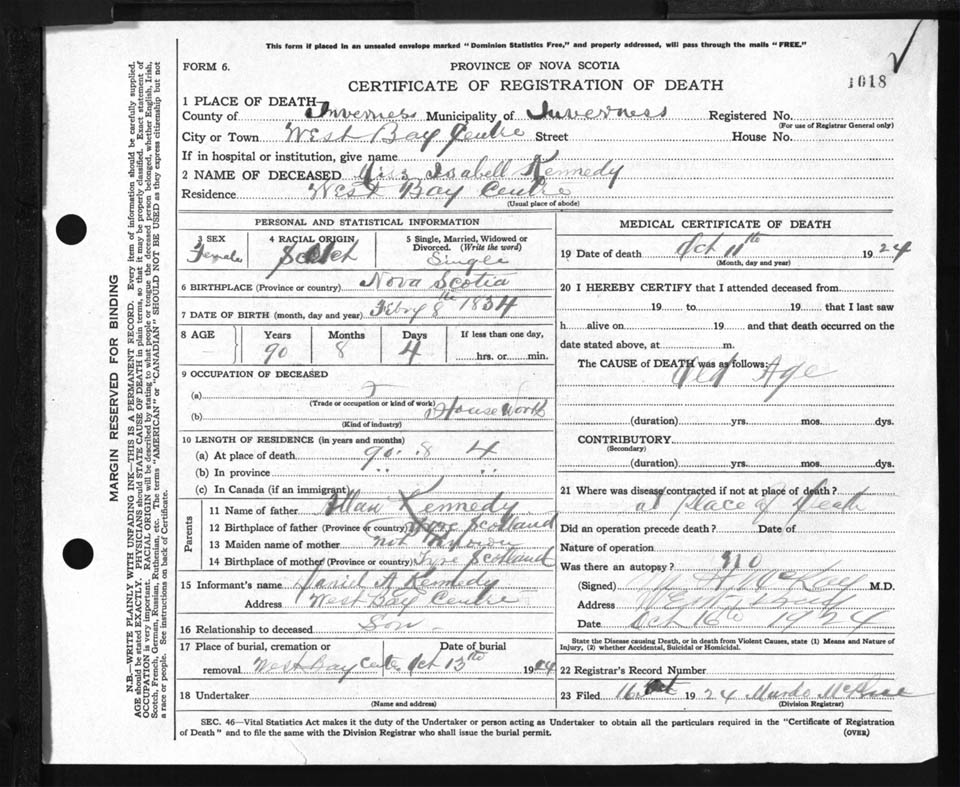 This form if placed in an unsealed envelope marked "Dominion Statistics Free," and properly addressed, will pass through the mails "FREE."
FORM 6.
PROVINCE OF NOVA SCOTIA
CERTIFICATE OF REGISTRATION OF DEATH
1018
1 PLACE OF DEATH—
County of Inverness Municipality of Inverness Registered No.
(For use of Registrar General only)
City or Town West Bay Centre Street House No.
If in hospital or institution, give name
2 NAME OF DECEASED Miss Isabell Kennedy
Residence West Bay Centre
(Usual place of abode)
PERSONAL AND STATISTICAL INFORMATION
3 SEX Female
4 RACIAL ORIGIN Scotch
5 Single, Married, Widowed or Divorced. (Write the word) Single
6 BIRTHPLACE (Province or country) Nova Scotia
7 DATE OF BIRTH (month, day and year) Febry 8th 1834
8 AGE Years Months Days If less than one day,
90 8 4 hrs. or min.
9 OCCUPATION OF DECEASED
(a)
(Trade or occupation or kind of work)
(b) House Work
(Kind of industry)
10 LENGTH OF RESIDENCE (in years and months)
(a) At place of death 90 8 4
(b) In province " "
(c) In Canada (if an immigrant)
Parents
11 Name of father Allan Kennedy
12 Birthplace of father (Province or country) Tyre Scotland
13 Maiden name of mother not known
14 Birthplace of mother (Province or country) Tyre Scotland
15 Informant's name Daniel A Kennedy
Address West Bay Centre
16 Relationship to deceased Son
17 Place of burial, cremation or removal West Bay Centre Date of burial Oct 13th 1924
18 Undertaker
(Name and address)
MEDICAL CERTIFICATE OF DEATH
19 Date of death Oct 11th 1924
(Month, day and year)
20 I HEREBY CERTIFY that I attended deceased from
19 to 19 that I last saw
h alive on 19 and that death occurred on the
date stated above, at m.
The CAUSE of DEATH was as follows:
Old Age
(duration) yrs. mos. dys.
CONTRIBUTORY
(Secondary)
(duration) yrs. mos. dys.
21 Where was disease contracted if not at place of death?
at Place of Death
Did an operation precede death? Date of
Nature of operation
Was there an autopsy? no
(Signed) McKay M.D.
Address
Date Oct 16th 1924
State the Disease causing Death, or in death from Violent Causes, state (1) Means and Nature of Injury, (2) whether Accidental, Suicidal or Homicidal.
22 Registrar's Record Number
23 Filed 16 Oct 1924 Murdo
(Division Registrar)
SEC. 46—Vital Statistics Act makes it the duty of the Undertaker or person acting as Undertaker to obtain all the particulars required in the "Certificate of Registration
of Death" and to file the same with the Division Registrar who shall issue the burial permit.
(OVER)
MARGIN RESERVED FOR BINDING
N.B.—WRITE PLAINLY WITH UNFADING INK—THIS IS A PERMANENT RECORD. Every item of information should be carefully supplied.
AGE should be stated EXACTLY. PHYSICIANS should STATE CAUSE OF DEATH in plain terms, so that it may be properly classified. Exact statement of
OCCUPATION is very important. RACIAL ORIGIN will be described by stating to what people or tongue the deceased person belonged, whether English, Irish,
Scotch, French, German, Russian, Ruthenian, etc. The terms "AMERICAN" or "CANADIAN" SHOULD NOT BE USED as they express citizenship but not
a race or people. See instructions on back of Certificate.